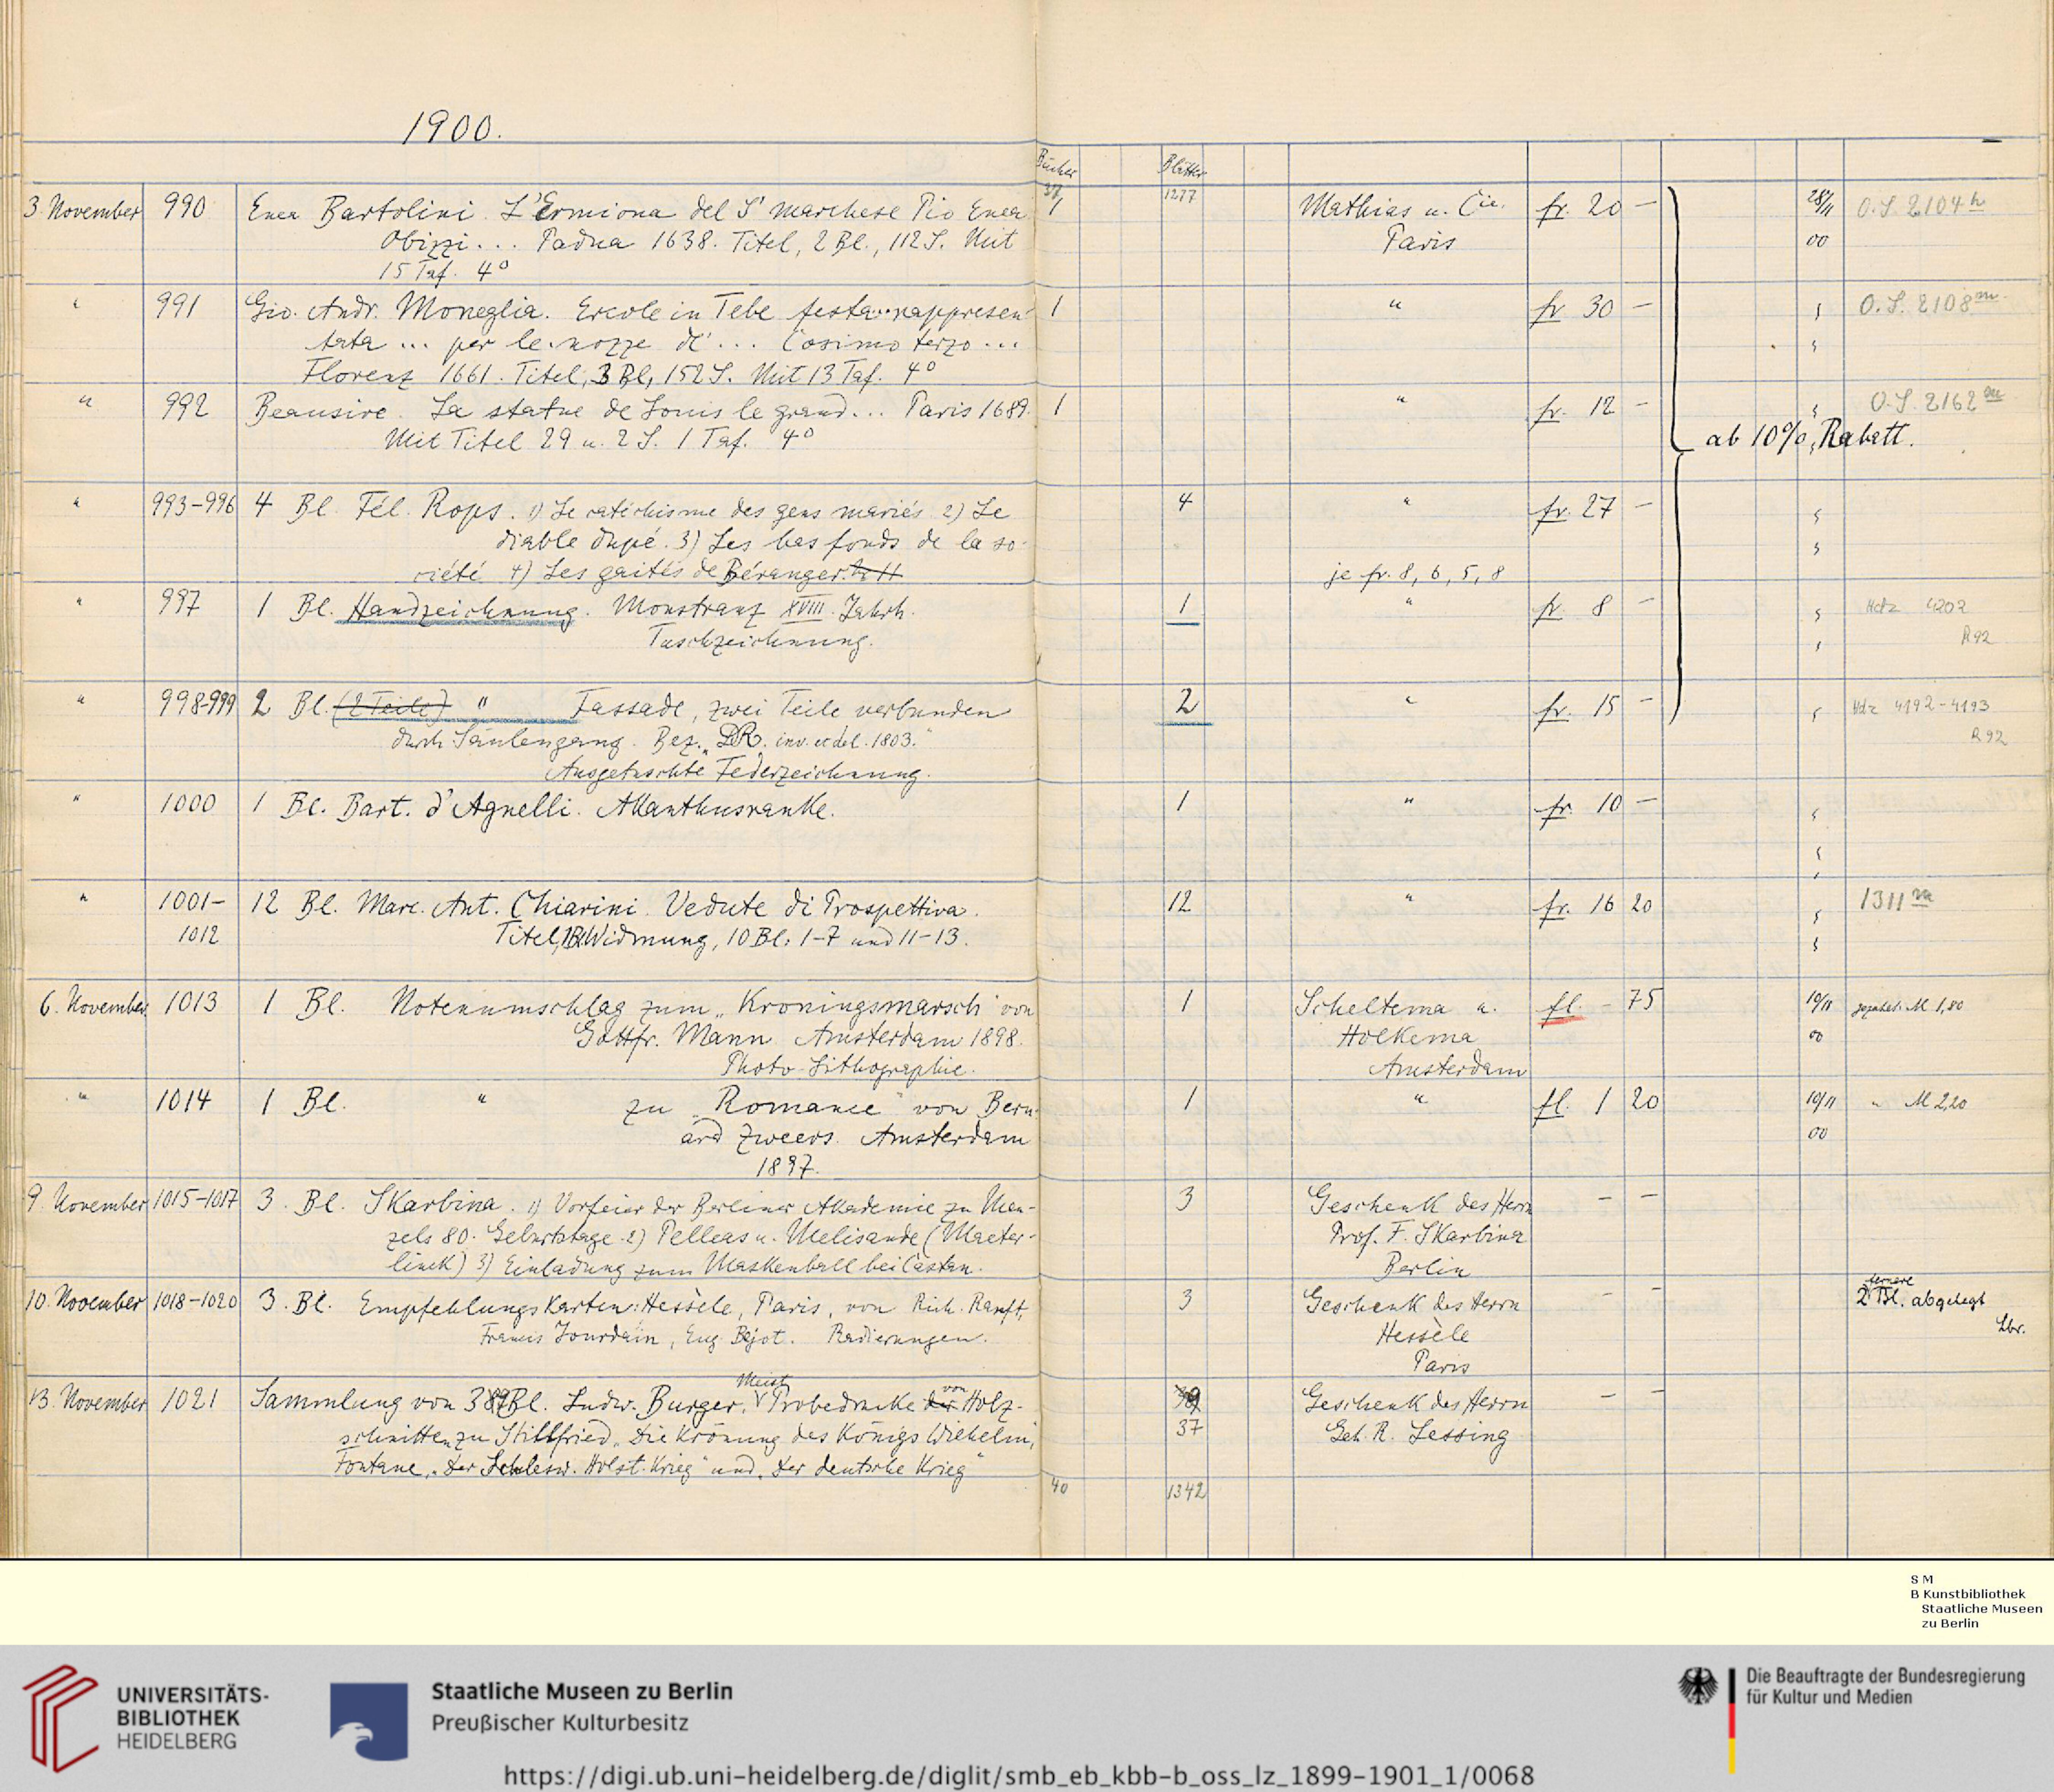 1900.
Bücher Blätter
37 1277
3 November 990 Enea Bartolini L'Ermiona del S marchese Pio Enea 1 Mathias u. Cie. fr. 20 — 28/11 O.S. 2104 h
Obizzi... Padua 1638. Titel, 2 Bl., 112 S. Mit Paris 00
15 Taf. 4°
" 991 Gio. Andr. Moneglia. Ercole in Tebe festa rappresen- 1 " fr 30 — O.S. 2108 m
tata ... per le nozze di ... Cosimo terzo ...
Florenz 1661. Titel, 3 Bl, 152 S. Mit 13 Taf. 4°
" 992 Beausire. La statue de Louis le grand... Paris 1689. 1 " fr. 12 — O.S. 2162
Mit Titel 29 u. 2 S. 1 Taf. 4° ab 10%, Rabatt.
" 993-996 4 Bl. Fél. Rops. 1) Le catéchisme des gens mariés 2) Le 4 " fr. 27 —
diable dupé. 3) Les bas fonds de la so-
ciété 4) Les gaités de Béranger. je fr. 8, 6, 5, 8
" 997 1 Bl. Handzeichnung. Monstranz XVIII. Jahrh. 1 " fr. 8 — Hdz 4202
Tuschzeichnung. R 92
" 998-999 2 Bl. (2 Teile) " Fassade, zwei Teile verbunden 2 " fr. 15 — Hdz 4192-4193
durch Säulengang. Bez. „DR. inv. et del. 1803." R 92
Ausgetuschte Federzeichnung.
" 1000 1 Bl. Bart. d'Agnelli. Akanthusranke. 1 " fr. 10 —
" 1001- 12 Bl. Marc. Ant. Chiarini. Vedute di Prospettiva. 12 " fr. 16 20 1311
1012 Titel, 1 Bl. Widmung, 10 Bl: 1-7 und 11-13.
6. November 1013 1 Bl. Notenumschlag zum „Kroningsmarsch" von 1 Scheltema u. fl. - 75 10/11 gezahlt: M 1,80
Gottfr. Mann Amsterdam 1898. Holkema 00
Photo-Lithographie. Amsterdam
" 1014 1 Bl. " zu „Romance" von Bern- 1 " fl. 1 20 10/11 " M 2,20
ard Zweers. Amsterdam 00
1897.
9. November 1015-1017 3. Bl. Skarbina. 1) Vorfeier der Berliner Akademie zu Men- 3 Geschenk des Herrn — —
zels 80. Geburtstage 2) Pelleas u. Melisande (Maeter- Prof. F. Skarbina
linck) 3) Einladung zum Maskenball bei Castan. Berlin
10. November 1018-1020 3. Bl. Empfehlungskarten: Hessèle, Paris, von Rich. Ranft, 3 Geschenk des Herrn — — 2 fernere Bl. abgelegt
Francis Jourdain, Eug Bejot. Radierungen. Hessèle Lbr.
Paris
13. November 1021 Sammlung von Bl. Ludw. Burger. Meist Probedrucke der von Holz- Geschenk des Herrn — —
schnitten zu Stillfried „Die Krönung des Königs Wilhelm, 37 Geh. R. Lessing
Fontane, „Der Schlesw. Holst. Krieg" und „Der deutsche Krieg"
40 1342
S M
B Kunstbibliothek
Staatliche Museen
zu Berlin
UNIVERSITÄTS-
BIBLIOTHEK
HEIDELBERG
Staatliche Museen zu Berlin
Preußischer Kulturbesitz
Die Beauftragte der Bundesregierung
für Kultur und Medien
https://digi.ub.uni-heidelberg.de/diglit/smb_eb_kbb-b_oss_lz_1899-1901_1/0068